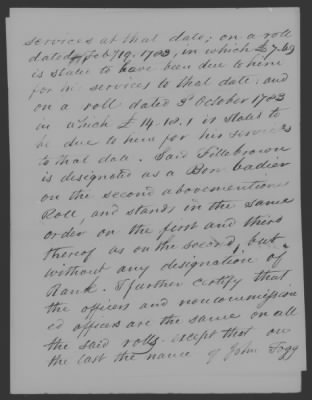 services at that date; on a roll
dated Feby 19. 1783, in which £7.
is stated to have been due to him
for his services to that date; and
on a roll dated 3d October 1783
in which £14.18.1 is stated to
be due to him for his services
to that date. Said Fillebrown
is designated as a Bombadier
on the second abovementioned
Roll, and stands in the same
order on the first and third
thereof as on the second, but
without any designation of
Rank. I further certify that
the officers and noncommission
ed officers are the same on all
the said rolls except that on
the last the name of John Fogg